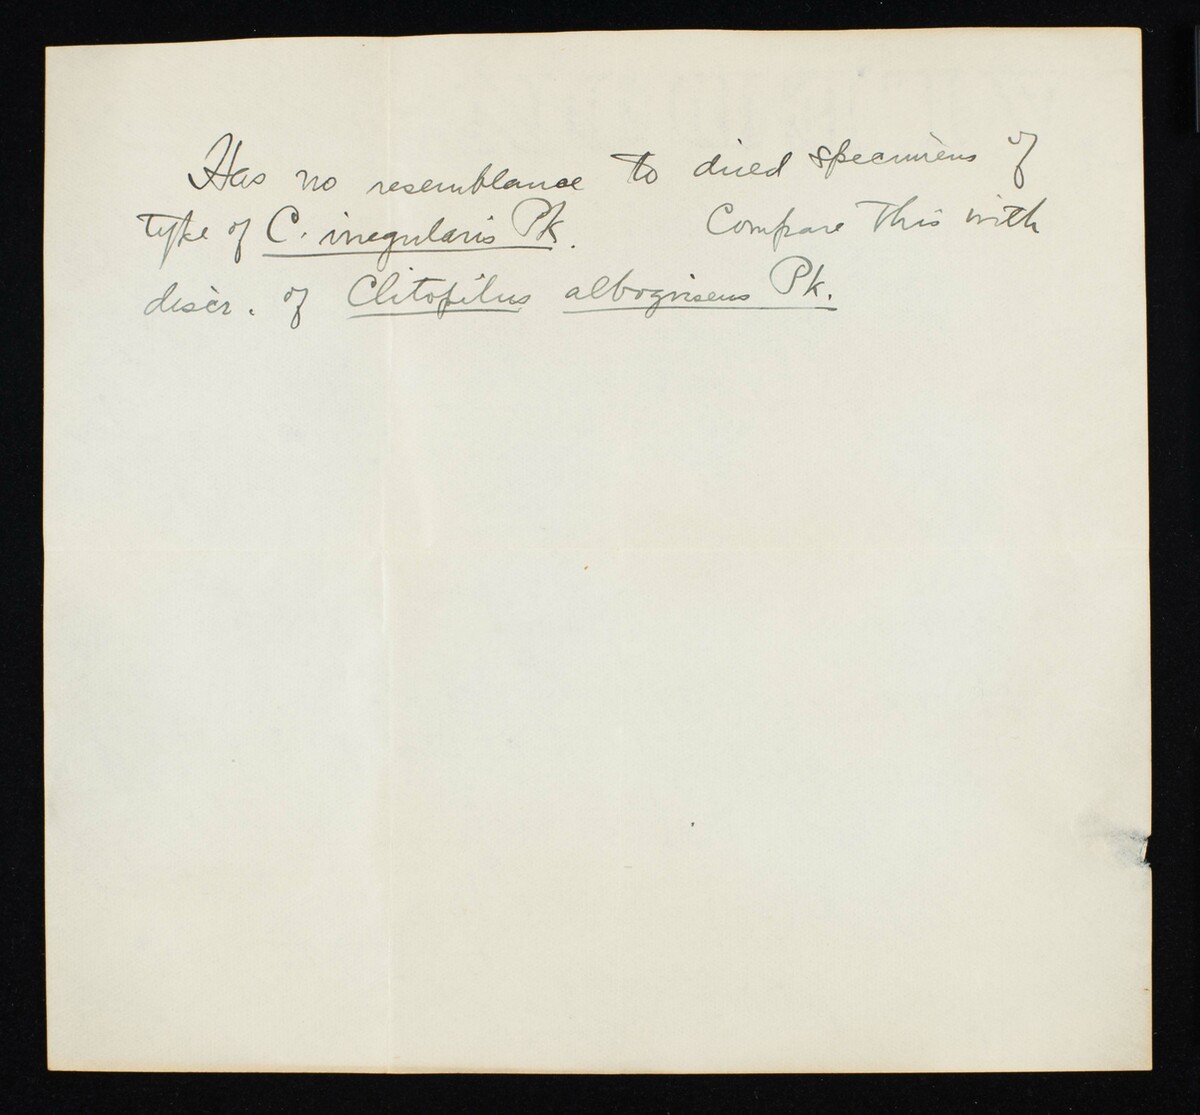 Has no resemblance to dried specimens of
type of C. irregularis Pk. Compare this with
discr. of Clitopilus albogriseus Pk.